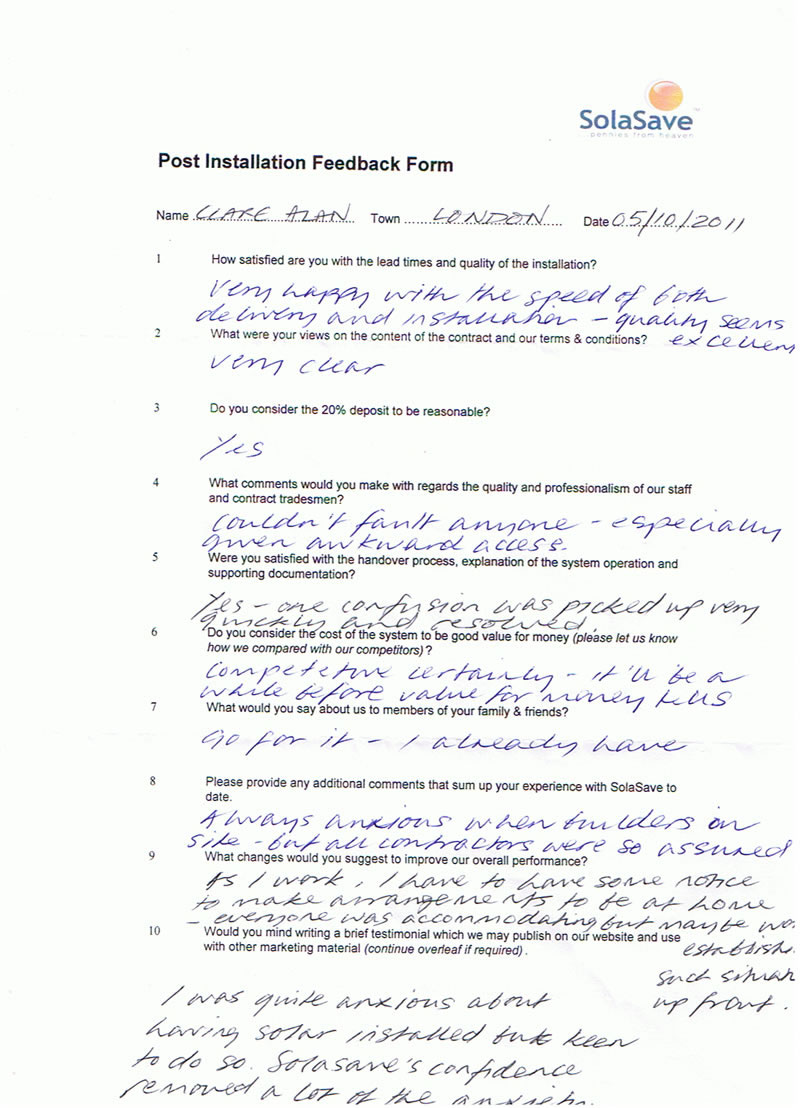 SolaSave
pennies from heaven
Post Installation Feedback Form
Name CLARE ALAN Town LONDON Date 05/10/2011
1 How satisfied are you with the lead times and quality of the installation?
Very happy with the speed of both
delivery and installation - quality seems
excellent
2 What were your views on the content of the contract and our terms & conditions?
Very clear
3 Do you consider the 20% deposit to be reasonable?
Yes
4 What comments would you make with regards the quality and professionalism of our staff
and contract tradesmen?
Couldn't fault anyone - especially
given awkward access.
5 Were you satisfied with the handover process, explanation of the system operation and
supporting documentation?
Yes - one confusion was picked up very
quickly and resolved.
6 Do you consider the cost of the system to be good value for money (please let us know
how we compared with our competitors) ?
Competetive certainly - it'll be a
while before value for money tells
7 What would you say about us to members of your family & friends?
Go for it - I already have
8 Please provide any additional comments that sum up your experience with SolaSave to
date.
Always anxious when builders on
site - but all contractors were so assured
9 What changes would you suggest to improve our overall performance?
As I work, I have to have some notice
to make arrangements to be at home
- everyone was accommodating but maybe
such
up front.
10 Would you mind writing a brief testimonial which we may publish on our website and use
with other marketing material (continue overleaf if required) .
I was quite anxious about
having solar installed but keen
to do so. Solasave's confidence
removed a lot of the anxiety.